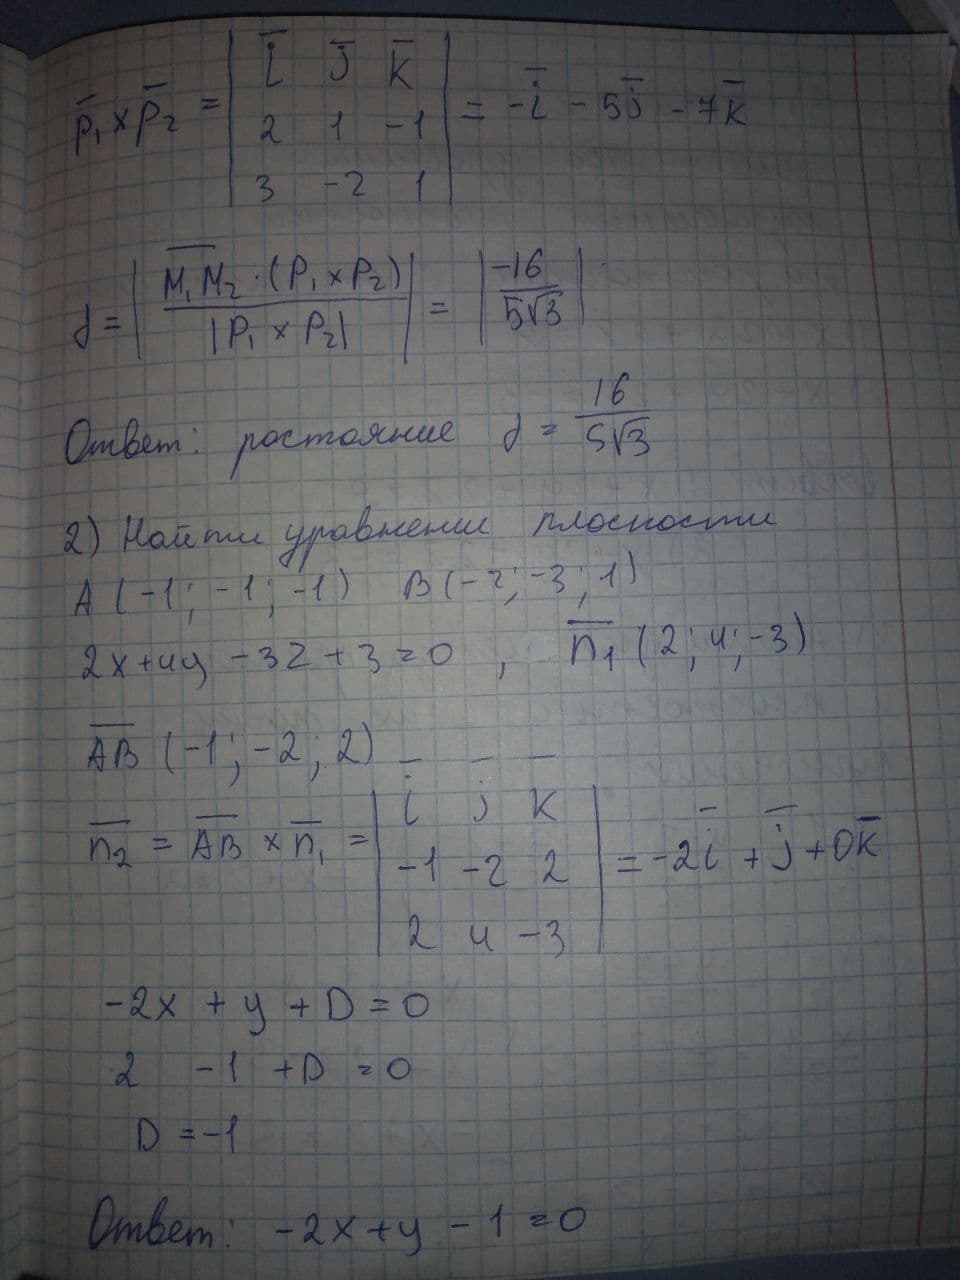 p̅₁ × p̅₂ = | i̅ j̅ k̅ ; 2 1 -1 ; 3 -2 1 | = -i̅ - 5j̅ - 7k̅
d = | M₁M₂ · (P₁ × P₂) / |P₁ × P₂| | = | -16 / 5√3 |
Ответ: растояние d = 16 / 5√3
2) Найти уравнении плоскости
A (-1; -1; -1) B (-2; -3; 1)
2x + 4y - 3z + 3 = 0 , n̅₁ (2; 4; -3)
AB (-1; -2; 2)
n̅₂ = AB × n̅₁ = | i j k ; -1 -2 2 ; 2 4 -3 | = -2i̅ + j̅ + 0k̅
-2x + y + D = 0
2 - 1 + D = 0
D = -1
Ответ: -2x + y - 1 = 0